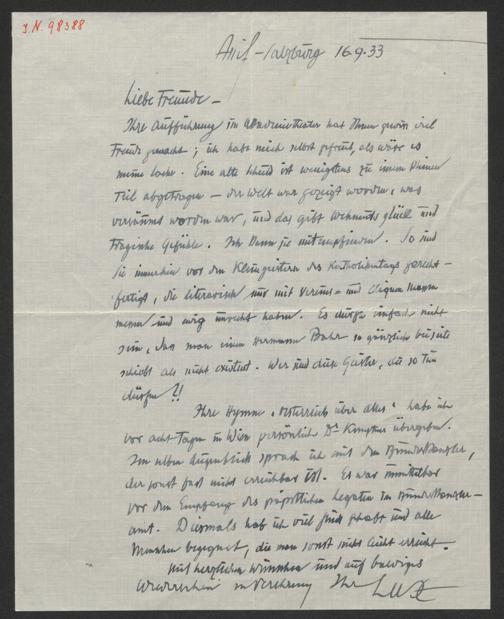 J.N. 98388
Anif-Salzburg 16.9.33
Liebe Freunde –
Ihre Aufführung im Akademietheater hat Ihnen gewiss viel
Freude gemacht; ich habe mich selbst gefreut, als wäre es
meine Sache. Eine alte Schuld ist wenigstens zu einem kleinen
Teil abgetragen – der Welt war gezeigt worden, was
versäumt worden war, und das gibt Wehmuts glück und
tragische Gefühle. Ich kann sie mitempfinden. So sind
Sie immerhin vor den Kleingeistern des Katholikentags gerecht-
fertigt, die literarisch nur mit Vereins- und Clique
messen und ewig unrecht haben. Es dürfte einfach nicht
sein, dass man einen Hermann Bahr so gänzlich beiseite
schiebt als nicht existent. Wer sind diese Geister, die so tun
dürfen!!
Ihre Hymne "Österreich über alles" habe ich
vor acht Tagen in Wien persönlich Dr übergeben.
Im selben Augenblick sprach ich mit dem Bundeskanzler,
der sonst fast nicht erreichbar ist. Es war unmittelbar
vor dem Empfang des päpstlichen Legaten im Bundeskanzler-
amt. Diesmals hab ich viel Glück gehabt und alle
Menschen begegnet, die man sonst nicht leicht erreicht.
Mit herzlichen Wünschen und auf baldiges
Wiedersehen in Verehrung Ihr Lux